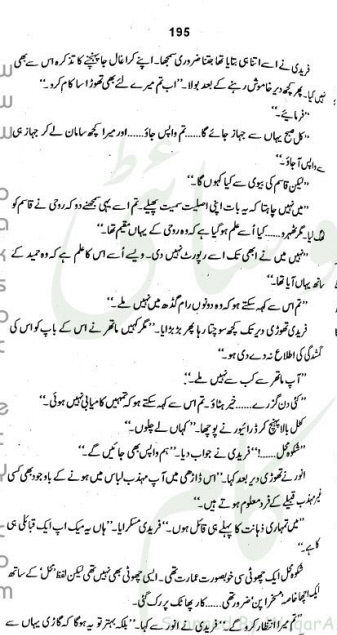 195
فریدی نے اسے اتنا ہی بتایا تھا جتنا ضروری سمجھا۔ اپنے کراغال جا پہنچنے کا تذکرہ اس سے بھی
نہیں کیا۔ پھر کچھ دیر خاموش رہنے کے بعد بولا۔ "اب تم میرے لئے بھی تھوڑا سا کام کرو۔"
"فرمائیے۔"
"کل صبح یہاں سے جہاز جائے گا......تم واپس جاؤ......اور میرا کچھ سامان لے کر جہاز ہی
سے واپس آ جاؤ۔"
"لیکن قاسم کی بیوی سے کیا کہوں گا۔"
"میں نہیں چاہتا کہ یہ بات اپنی اصلیت سمیت پھیلے۔ تم اسے یہی سمجھنے دو کہ روحی نے قاسم کو
لیا۔ مگر ٹھہرو......کیا اُسے علم ہو گیا ہے کہ وہ روحی کے یہاں مقیم تھا۔"
"نہیں میں نے ابھی تک اسے رپورٹ نہیں دی۔ ویسے اُسے اس کا علم ہے کہ وہ حمید کے
ساتھ یہاں آیا تھا۔"
"تم اس سے کہہ سکتے ہو کہ وہ دونوں رام گڈھ میں نہیں ملے۔"
فریدی تھوڑی دیر تک کچھ سوچتا رہا پھر بڑبڑایا۔ "مگر کہیں ماتھر نے اس کے باپ کو اس کی
گمشدگی کی اطلاع نہ دے دی ہو۔"
"آپ ماتھر سے کب سے نہیں ملے۔"
"کئی دن گزرے......خیر ہٹاؤ۔ تم اس سے کہہ سکتے ہو کہ تمہیں کامیابی نہیں ہوئی۔"
پہنچ کر ڈرائیور نے پوچھا۔ "کہاں لے چلوں۔"
"شکوہ محل......!" فریدی نے جواب دیا۔ "ہم واپس بھی جائیں گے۔"
انور نے تھوڑی دیر بعد کہا۔ "اس ڈاڑھی میں آپ مہذب لباس میں ہونے کے باوجود بھی کسی
غیر مہذب قبیلے کے فرد معلوم ہوتے ہیں۔"
"میں تمہاری ذہانت کا پہلے ہی قائل ہوں۔" فریدی مسکرایا۔ "ہاں یہ میک اپ ایک قبائلی ہی
کا ہے۔"
شکوہ محل ایک چھوٹی سی خوبصورت عمارت تھی۔ ایسی چھوٹی بھی نہیں تھی لیکن لفظ "محل" کے ساتھ
ایک اچھا خاصہ مسخرا پن ضرور تھی......کار پھاٹک پر رک گئی۔
"تم میرا انتظار کرو گے۔" فریدی نے انور سے کہا۔ "بلکہ بہتر تو یہ ہوگا کہ گاڑی یہاں سے